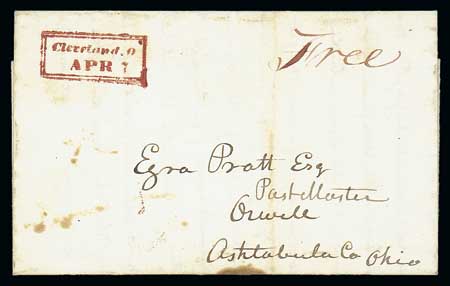 Cleveland. O
APR 7
Free
Ezra Pratt Esq
Post Master
Orwell
Ashtabula Co Ohio